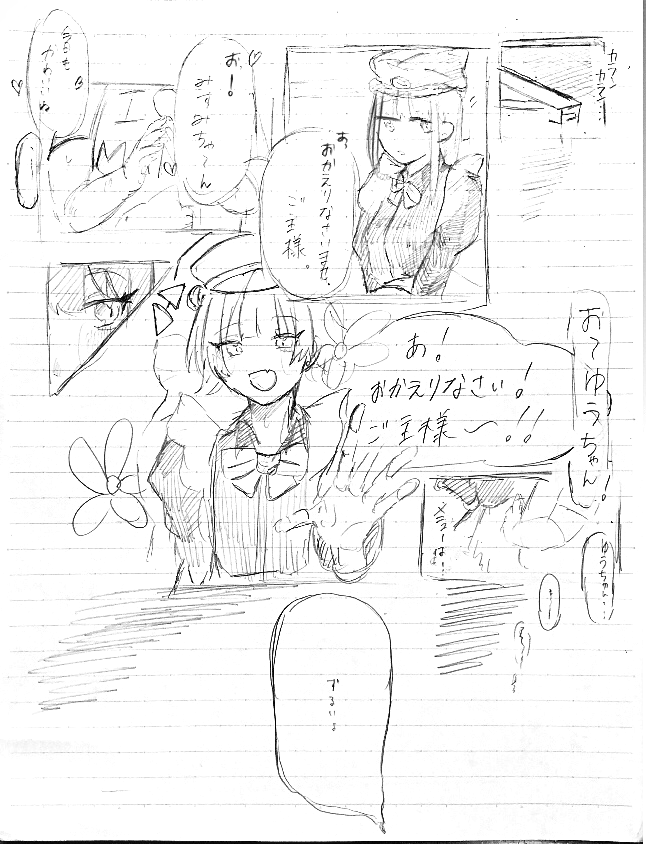 カラン
カラン
お
おかえりなさいませ、
ご主様。
お!
みずみちゃーん
今日も
かわいいね
おてゆうちゃん!
あ!
おかえりなさい!
ご主様〜!!
ゆうちゃん…
ずるいよ